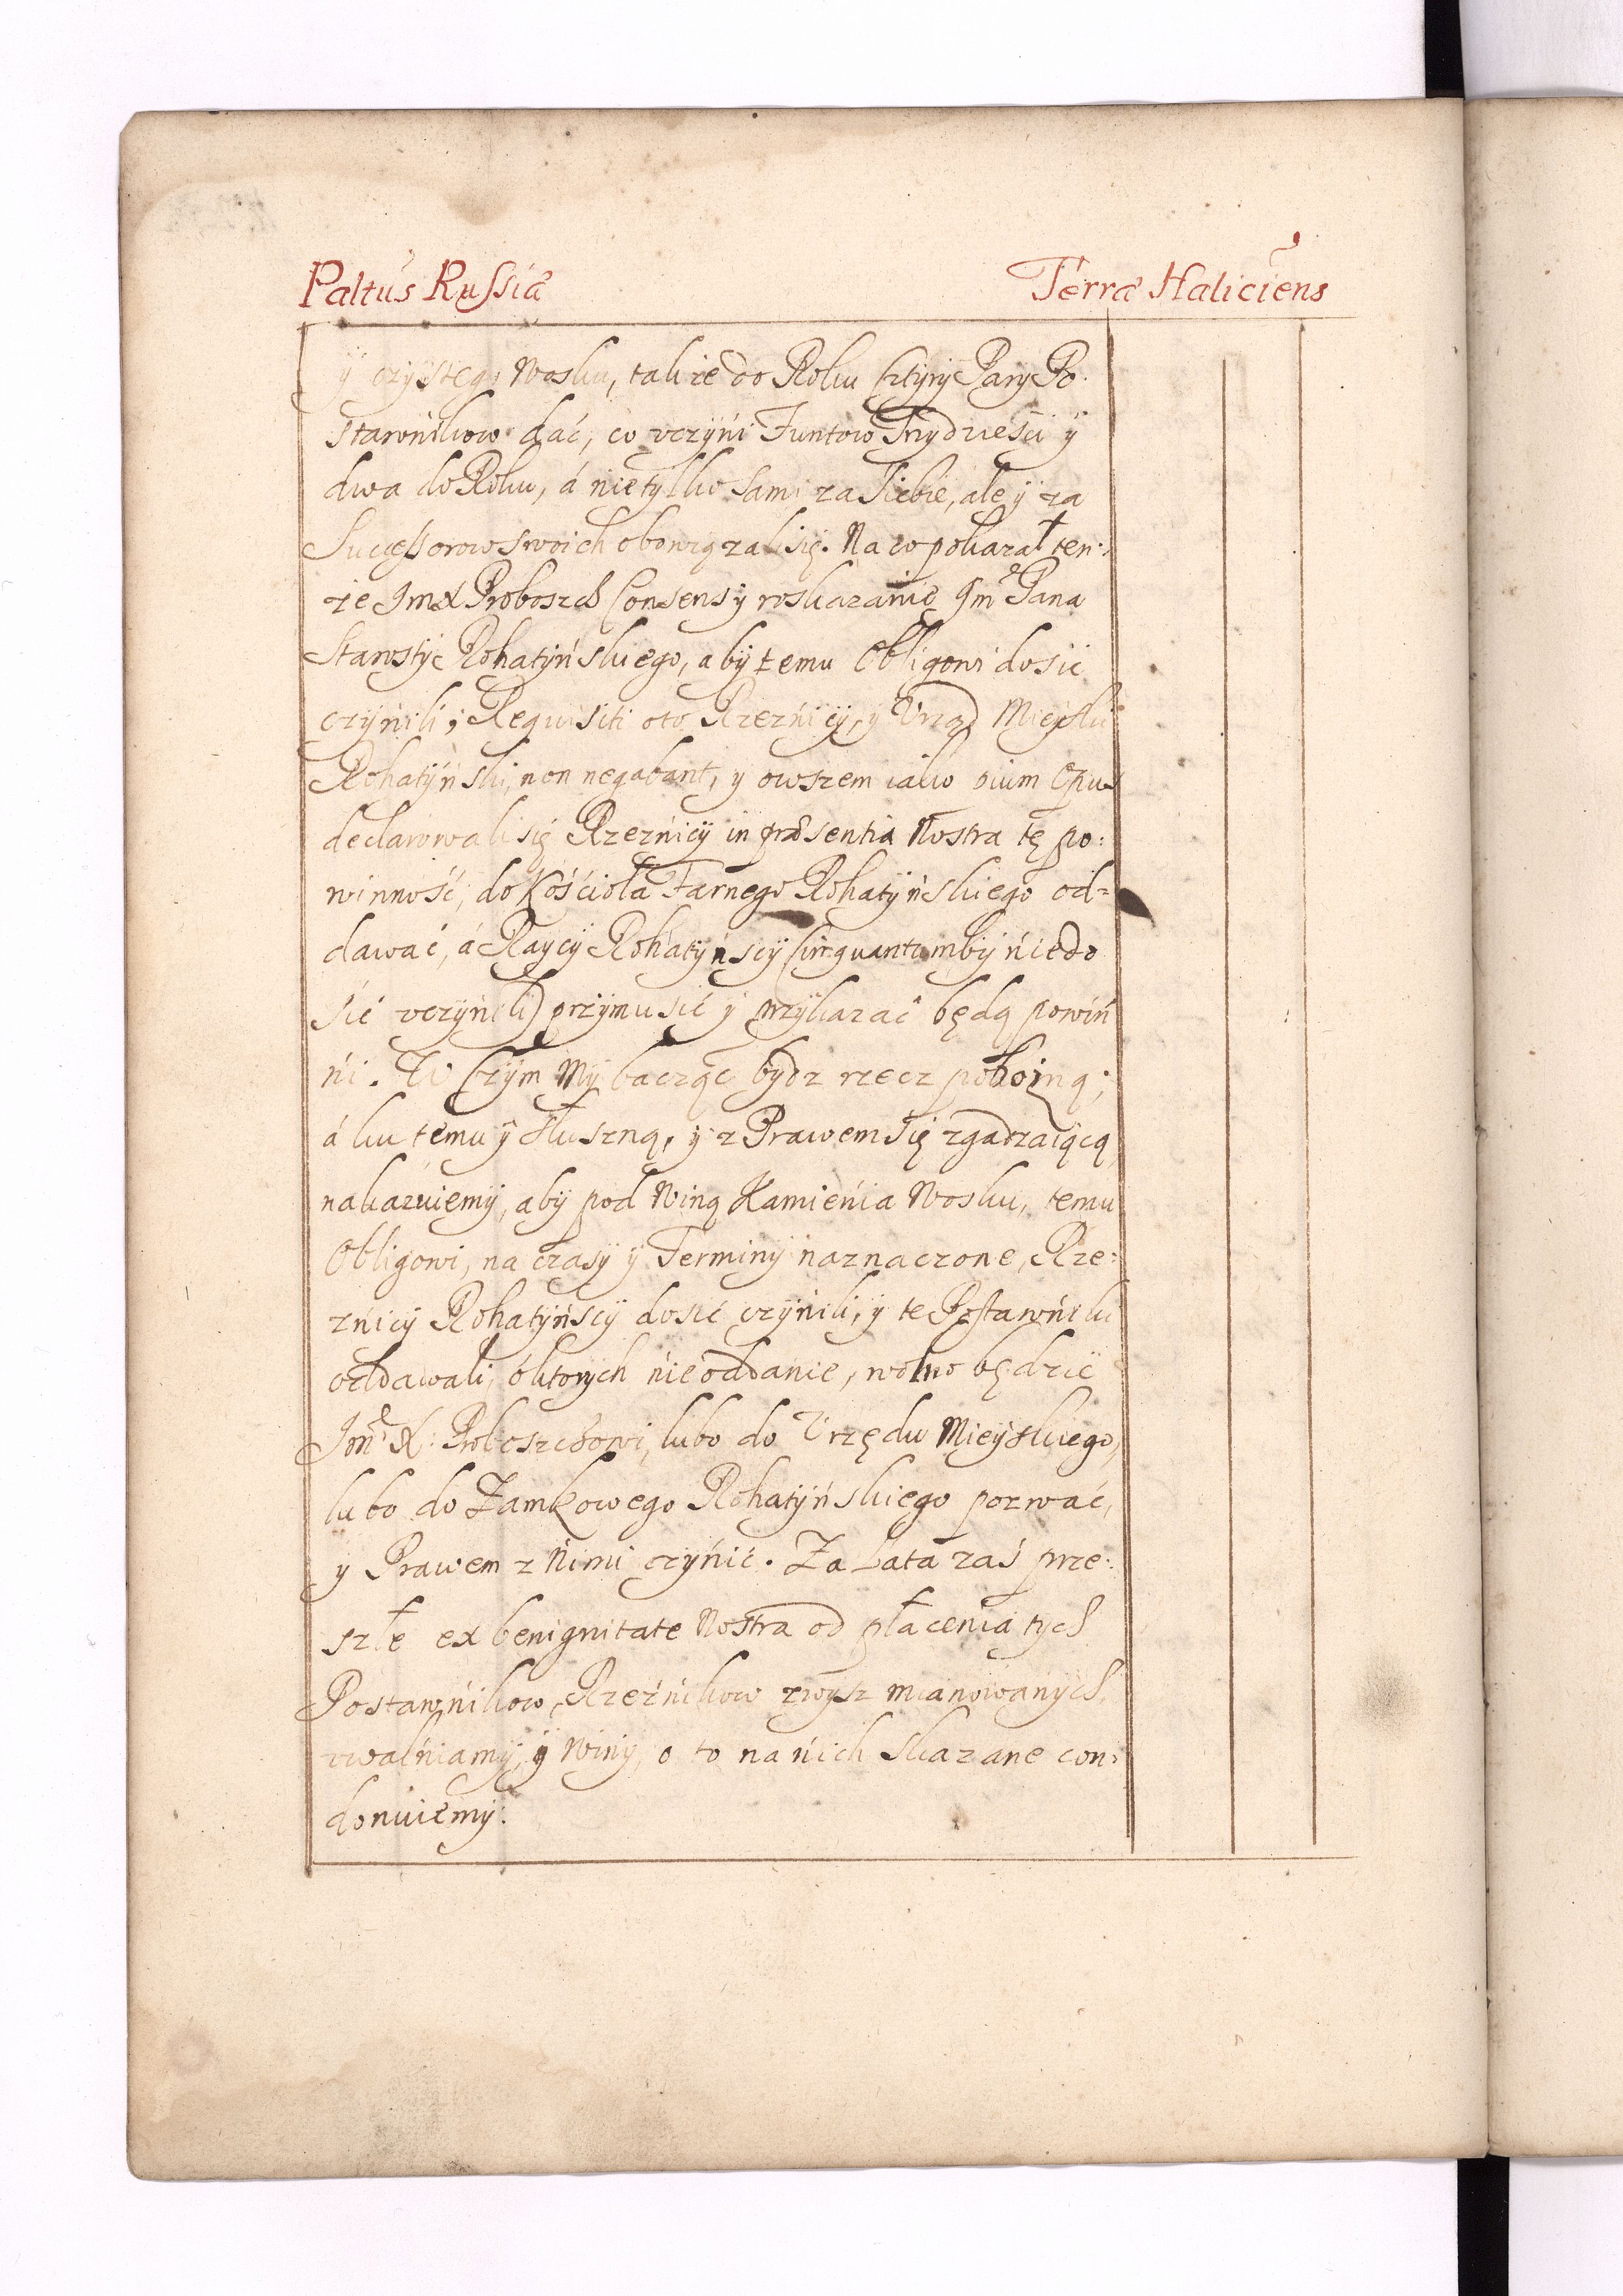 Paltûs Russiæ Terræ Haliciens̃
ÿ czÿstego Wosku, takze do Roku Cztÿrÿ Parÿ Po:
stawńikow dać, co vczÿńi Funtow Trzydzieści ÿ
dwa do Roku, á nie tÿlko sami za Siebie, ale ÿ za
Successorow swoich obowiązali się. Na co pokazał ten:
że Jmx Proboszcz Consens ÿ roskazanie Jmᶜ Pana
Starosty Rohatÿńskiego, abÿ temu Obligowi dosić
czÿńili; Requisiti oto Rzeźnicÿ, ÿ Vrząd Mieÿski
Rohatÿński, non negabant, y owszem iako pium Opus
declarowali się Rzeźnicÿ in præsentia Nostra tę po:
winność, do Kościoła Farnego Rohatÿńskiego od=
dawać, á Raÿcÿ Rohatÿńscÿ (in quantum bÿ ńie do
sić vczÿńili) przÿmusić ÿ przÿkazać będą powiń
ńi. W Czÿm Mÿ bacząc bydz rzecz pobożną;
á ku temu ÿ słuszną, ÿ z Prawem się zgadzaiącą
nakazuiemÿ, abÿ pod Winą Kamieńia Wosku, temu
Obligowi, na czasÿ ÿ Terminÿ naznaczone, Rze:
źnicÿ Rohatÿńscÿ dosić czÿńili, ÿ te Postawńiki
oddawali, o ktorÿch ńie oddanie, wolno będzie
Jmᶜ X: Proboszczowi, lubo do Vrzędu Mieÿskiego,
lubo do Zamkowego Rohatÿńskiego pozwać,
ÿ Prawem z Nimi czÿńić. Za Lata zaś prze:
szłe ex benignitate Nostra od płacenia tÿch
Postawńikow, Rzeźńikow zwysz mianowanÿch,
vwalńiamÿ, ÿ Winÿ, o to na ńich skazane con:
donuiemÿ: